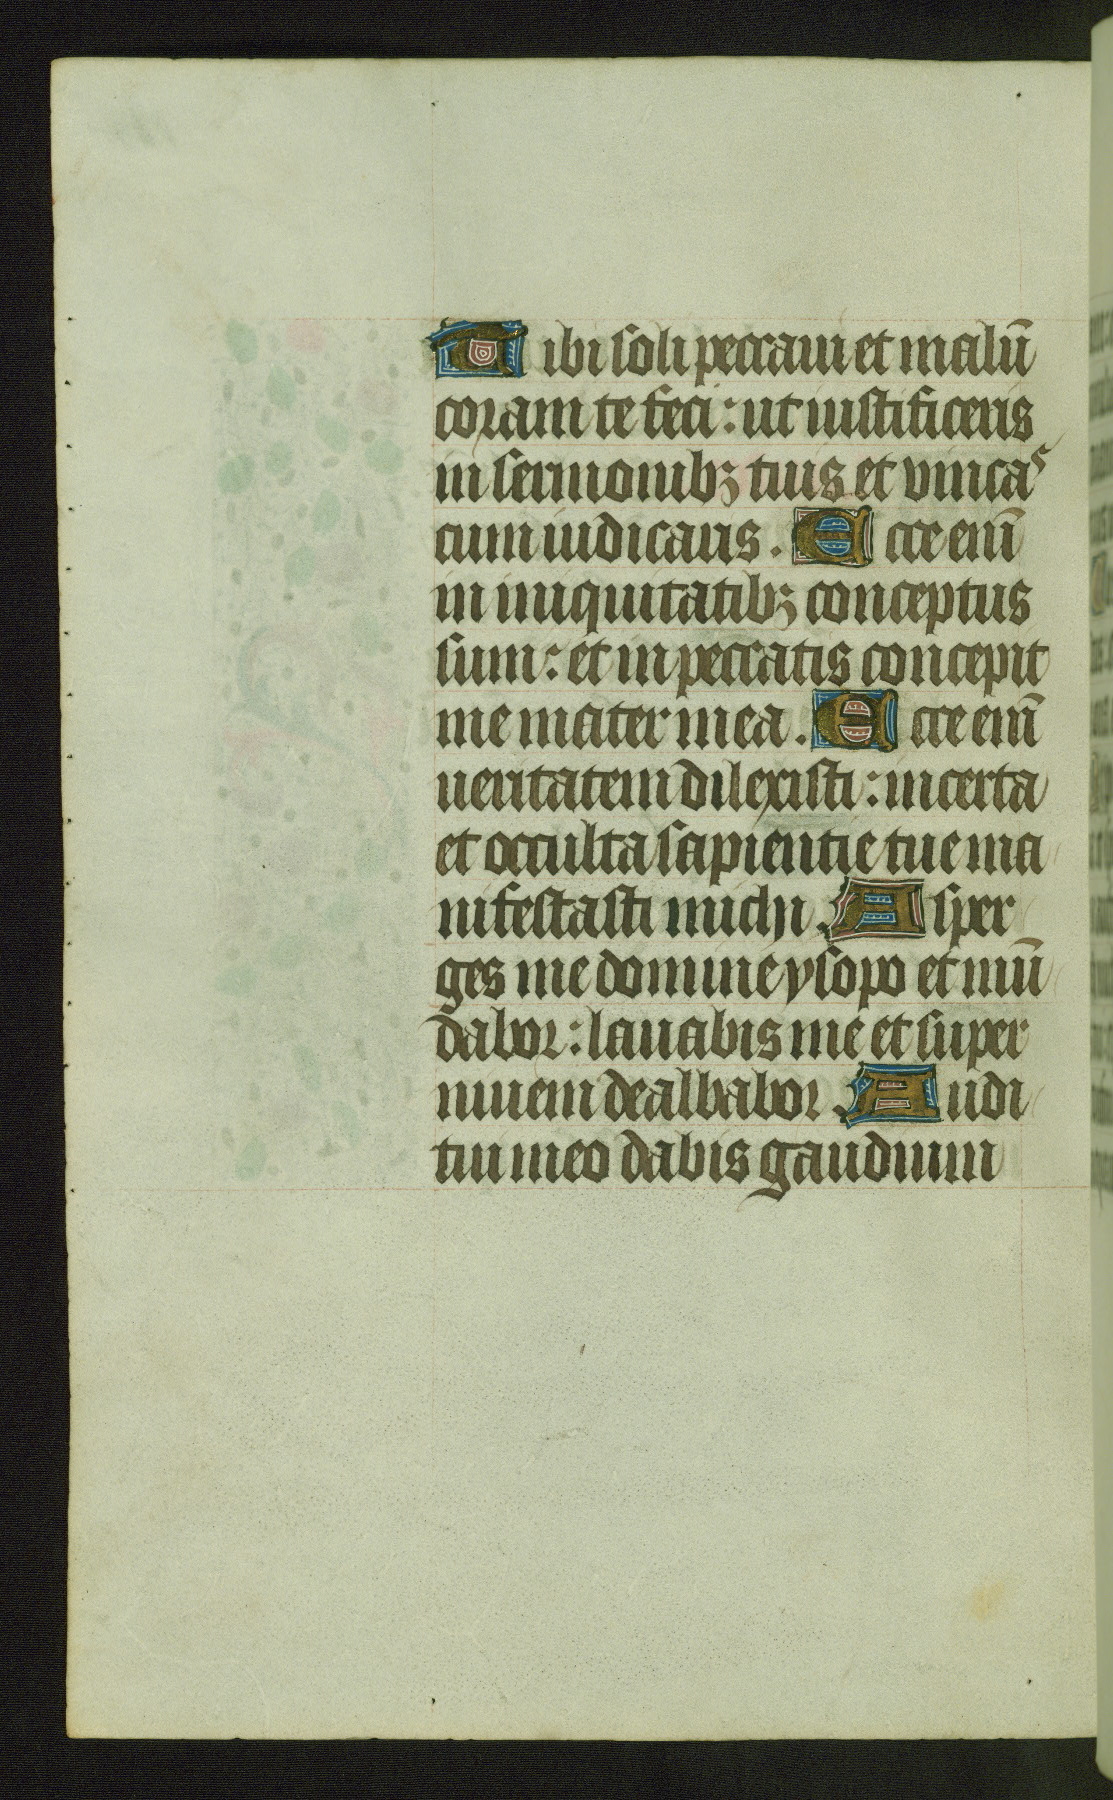 Tibi soli peccaui et malū
coram te feci : ut iustificeris
in sermonibꝫ tuis et vincas
cum iudicaris . Ecce enī
in iniquitatibꝫ conceptus
sum : et in peccatis concepit
me mater mea . Ecce enī
ueritatem dilexisti : incerta
et occulta sapientie tue ma
nifestasti michi . Asper
ges me domine ysopo et mū
dabor : lauabis me et super
niuem dealbabor . Audi
tui meo dabis gaudium